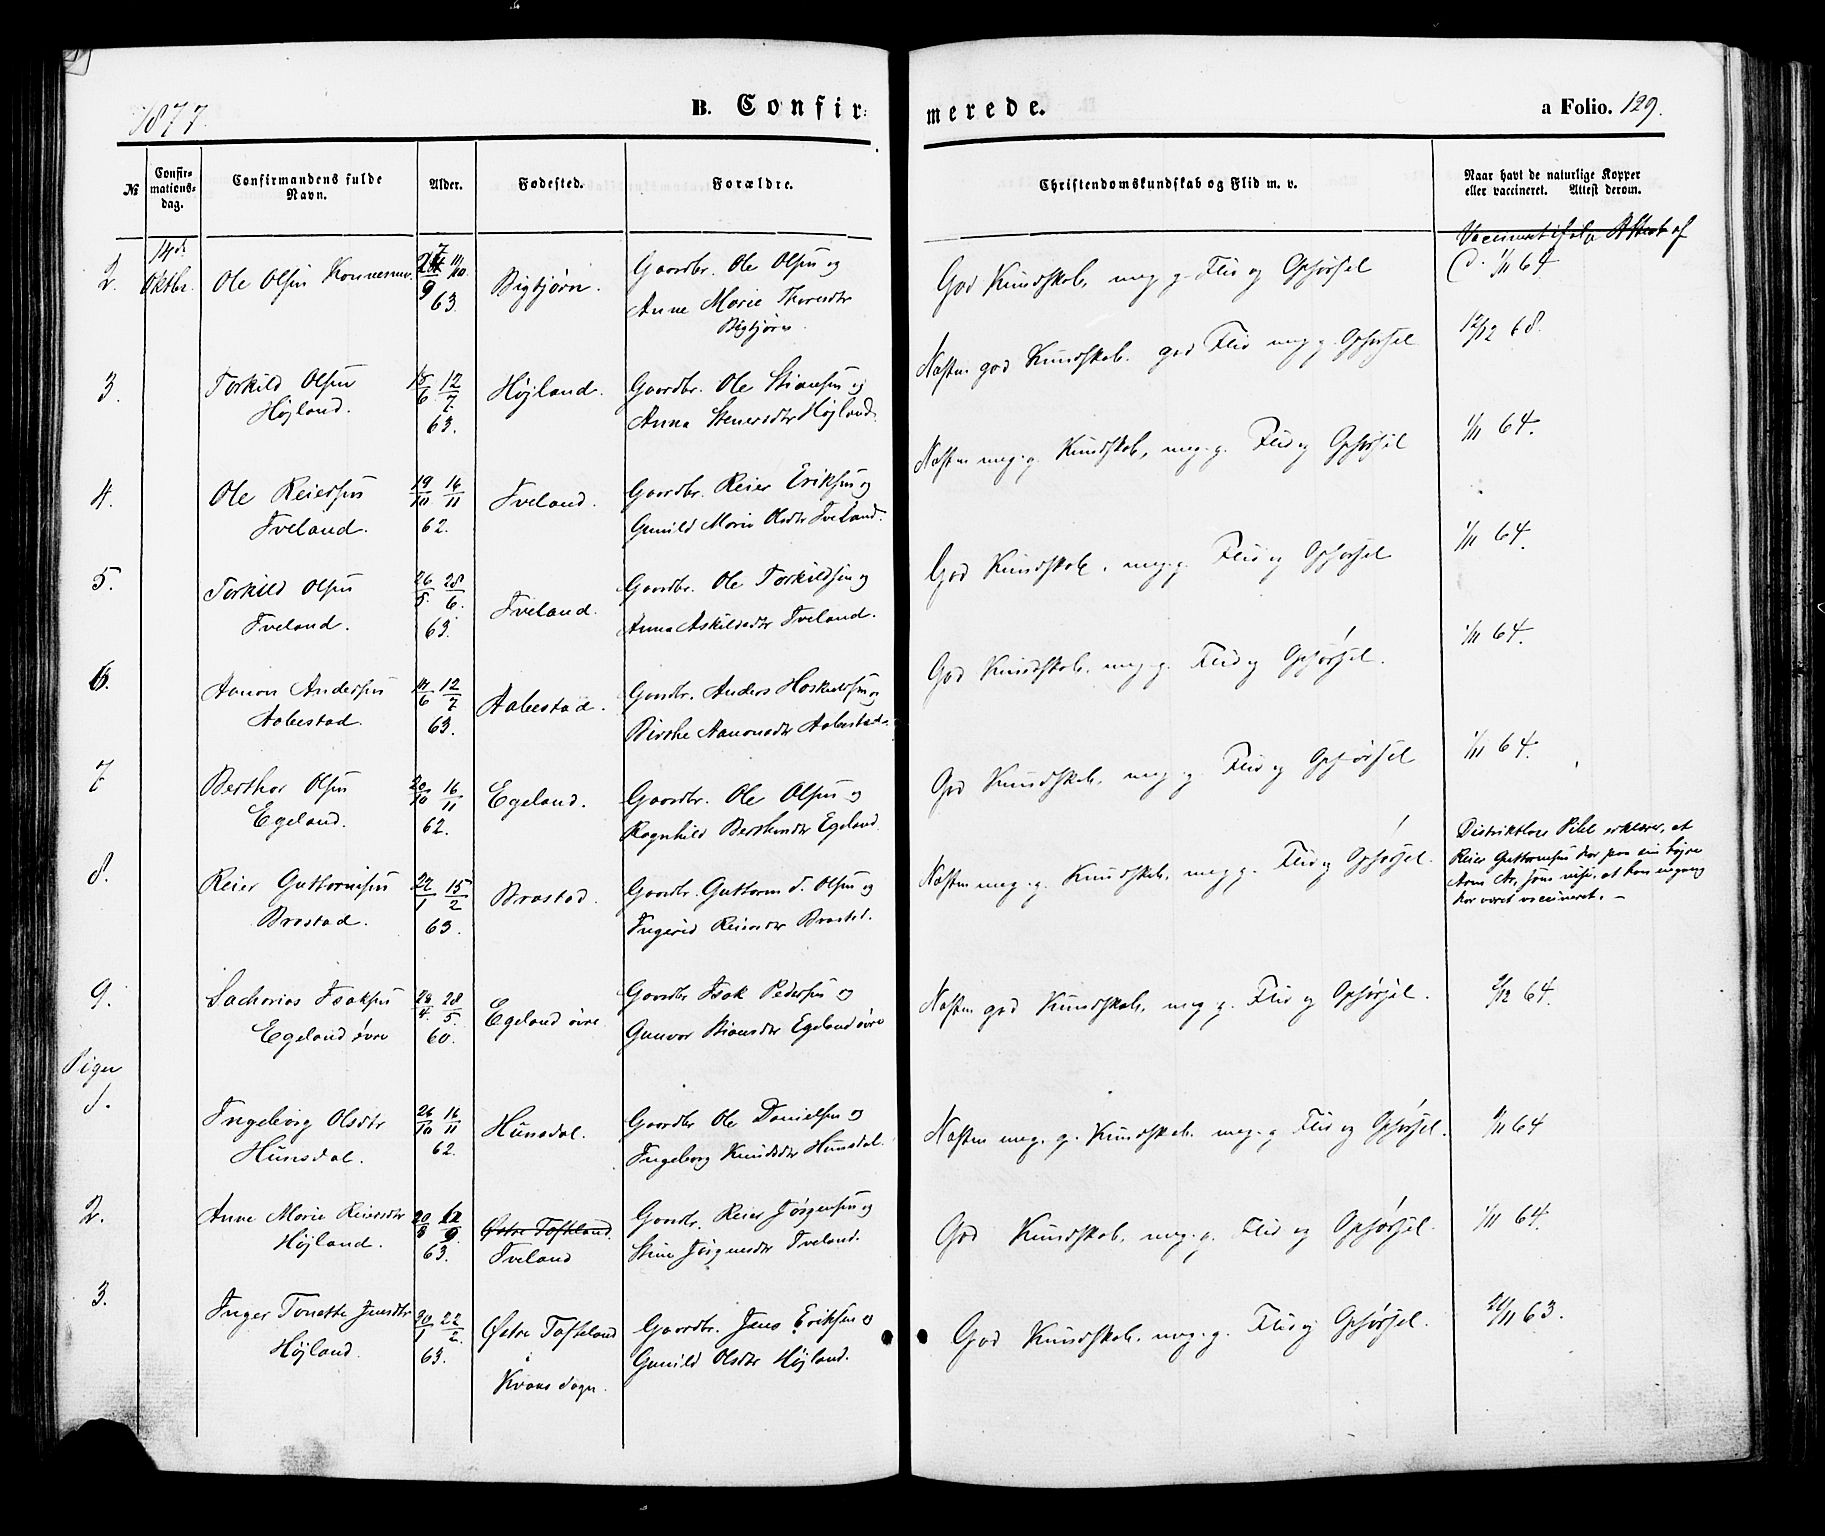 1877.
B. Confir:
merede.
a Folio. 129.
№
Confir-
mations-
dag.
Confirmandens fulde
Navn.
Alder.
Fødested.
Forældre.
Christendomskundskab og Flid m. v.
Naar havt de naturlige Kopper
eller vaccineret. Attest derom.
2. 14de Oktbr.
Ole Olsen
9 63.
Bigbjørn.
Gaardbr. Ole Olsen og
Anne Marie Thorsdtr
Bigbjørn
God Kundskab, meg. g. Flid og Opførsel
1/11 64
3.
Torkild Olsen
Højland.
15/6 12/7
63.
Højland.
Gaardbr. Ole Stiansen og
Anna Stenersdtr Højland.
Næsten god Kundskab. god Flid meg. g. Opførsel
12/12 68.
4.
Ole Reiersen
Tveland.
19/10 16/11
62.
Tveland.
Gaardbr. Reier Eriksen og
Gunild Marie Olsdtr Tveland.
Næsten meg. g. Kundskab, meg. g. Flid og Opførsel
1/11 64.
5.
Torkild Olsen
Tveland.
26/5. 28/6.
63.
Tveland.
Gaardbr. Ole Torkildsen og
Anna Askildsdtr Tveland.
God Kundskab, meg. g. Flid og Opførsel
1/11 64.
6.
Aanon Andersen
Aabestad.
11/6 12/7
63.
Aabestad.
Gaardbr. Anders Haskildsen og
Birthe Aanonsdtr Aabestad.
God Kundskab, meg. g. Flid og Opførsel.
1/11 64.
7
Berthor Olsen
Egeland.
20/10 16/11
62.
Egeland.
Gaardbr. Ole Olsen og
Ragnhild Egeland
God Kundskab, meg. g. Flid og Opførsel
1/11 64.
8.
Reier Guttormsen
Brastad.
22/1 15/2
63.
Brastad.
Gaardbr. Guttorm S. Olsen og
Ingerid Reiersdtr Brastad.
Næsten meg. g. Kundskab, meg g. Flid og Opførsel.
Distriktlæge Pihl erklærer, at
Reier Guttormsen har paa sin højre
Arm Ar, som vise, at han engang
har været vaccineret. –
9.
Sacharias Isaksen
Egeland øvre
28/4. 28/5.
60.
Egeland øvre
Gaardbr Isak Pedersen og
Gunvor Stiansdtr Egeland øvre
Næsten god Kundskab, meg g. Flid og Opførsel.
9/12 64.
Piger
1.
Ingeborg Olsdtr
Hunsdal.
26/10 16/11
62.
Hunsdal.
Gaardbr Ole Danielsen og
Ingeborg Knudsdtr Hunsdal.
Næsten meg. g. Kundskab. meg. g Flid og Opførsel.
1/11 64
2.
Anne Marie Reiersdtr
Højland.
20/8 12/9.
63.
Østre Tofteland.
Tveland
Gaardbr. Reier Jørgensen og
Stine Jørgensdtr Tveland.
God Kundskab, meg. g. Flid og Opførsel.
1/11 64.
3.
Inger Tonette Jensdtr
Højland.
20/1 22/2.
63.
Østre Tofteland
i
Kvaas Sogn.
Gaardbr. Jens Eriksen og
Gunild Olsdtr Højland.
God Kundskab, meg. g. Flid og Opførsel.
21/11 63.